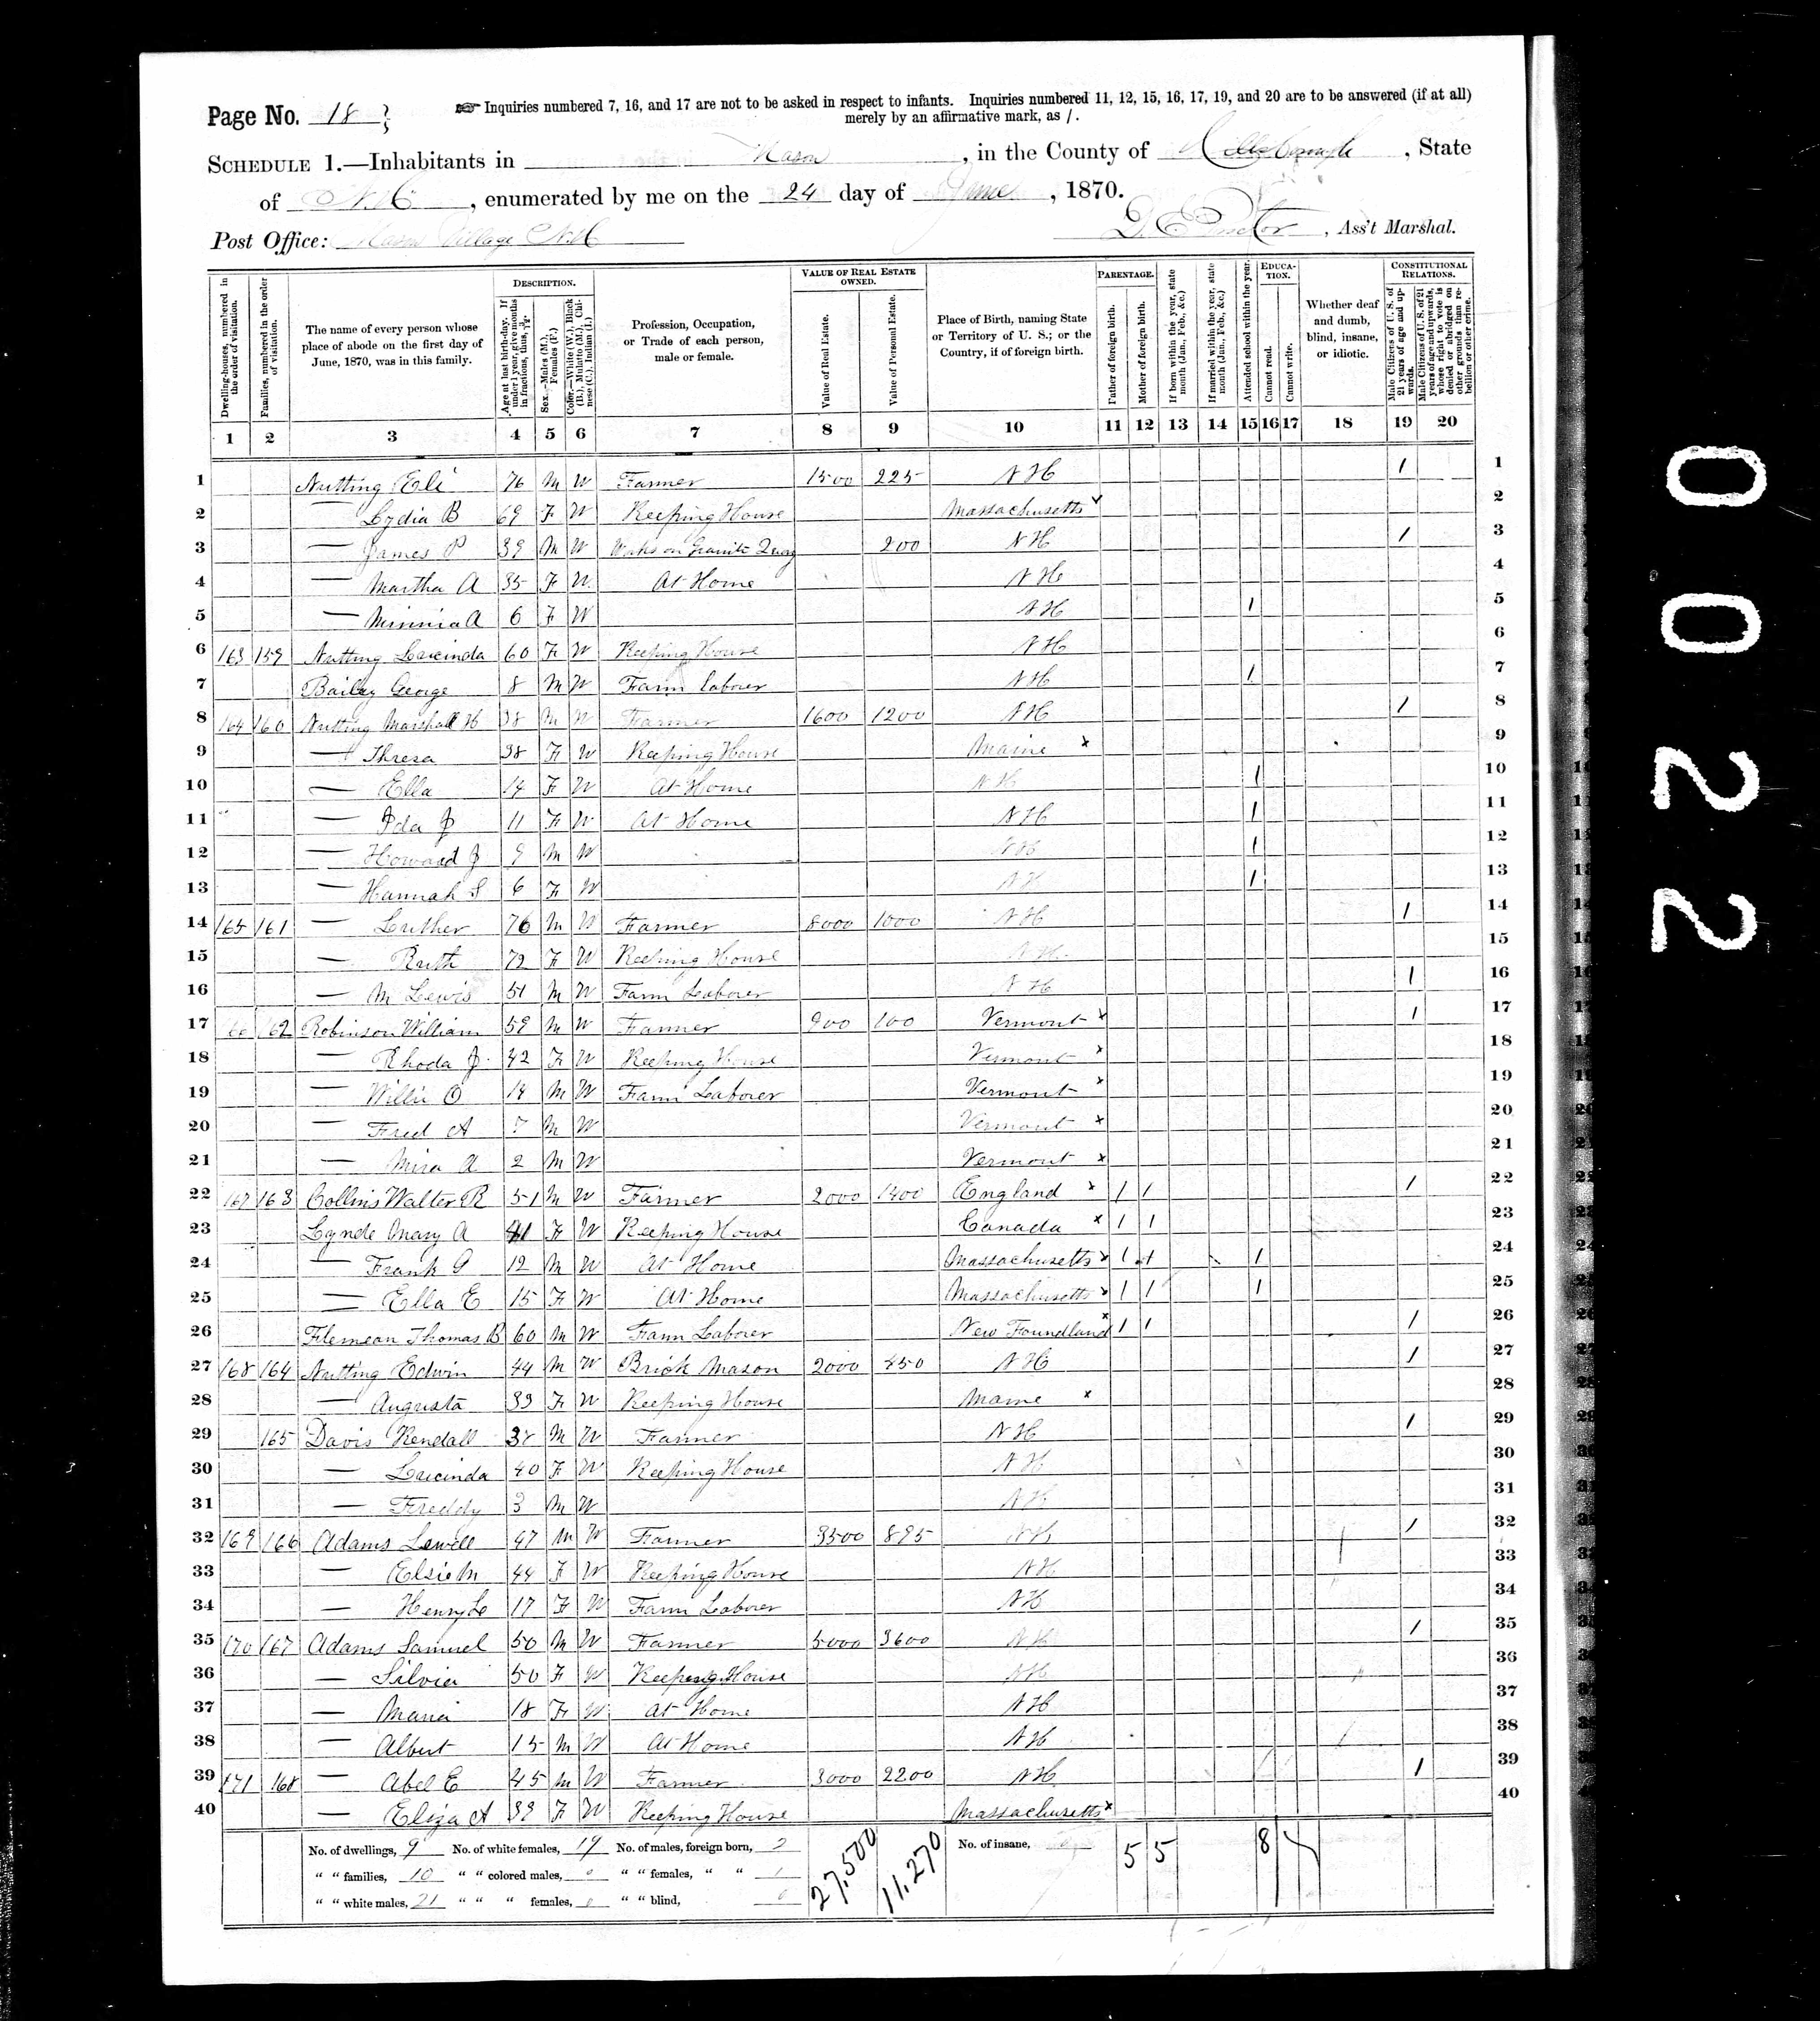 Page No. 18
☞ Inquiries numbered 7, 16, and 17 are not to be asked in respect to infants. Inquiries numbered 11, 12, 15, 16, 17, 19, and 20 are to be answered (if at all)
merely by an affirmative mark, as /.
SCHEDULE 1.—Inhabitants in Mason, in the County of Hillsborough, State
of N.H., enumerated by me on the 24 day of June, 1870.
Post Office: Mason Village N.H.
, Ass't Marshal.
Dwelling-houses, numbered in the order of visitation.
Families, numbered in the order of visitation.
The name of every person whose place of abode on the first day of June, 1870, was in this family.
DESCRIPTION.
Age at last birth-day. If under 1 year, give months in fractions, thus, 3/12.
Sex.—Males (M.), Females (F.)
Color.—White (W.), Black (B.), Mulatto (M.), Chinese (C.), Indian (I.)
Profession, Occupation, or Trade of each person, male or female.
VALUE OF REAL ESTATE OWNED.
Value of Real Estate.
Value of Personal Estate.
Place of Birth, naming State or Territory of U. S.; or the Country, if of foreign birth.
PARENTAGE.
Father of foreign birth.
Mother of foreign birth.
If born within the year, state month (Jan., Feb., &c.)
If married within the year, state month (Jan., Feb., &c.)
Attended school within the year.
EDUCATION.
Cannot read.
Cannot write.
Whether deaf and dumb, blind, insane, or idiotic.
CONSTITUTIONAL RELATIONS.
Male Citizens of U. S. of 21 years of age and upwards.
Male Citizens of U. S. of 21 years of age and upwards, whose right to vote is denied or abridged on other grounds than rebellion or other crime.
1 2 3 4 5 6 7 8 9 10 11 12 13 14 15 16 17 18 19 20
1 Nutting Eli 76 M W Farmer 1500 225 N H / 1
2 — Lydia B 69 F W Keeping House Massachusetts 2
3 — James P 39 M W Works on Granite 200 N H / 3
4 — Martha A 35 F W At Home N H 4
5 — Minnia A 6 F W N H / 5
6 163 159 Nutting Lucinda 60 F W Keeping House N H 6
7 Bailey George 8 M W Farm Laborer N H / 7
8 164 160 Nutting Marshall H 38 M W Farmer 1600 1200 N H / 8
9 — Thresa 38 F W Keeping House Maine x 9
10 — Ella 14 F W At Home N H / 10
11 — Ida J 11 F W At Home N H / 11
12 — Howard J 9 M W N H / 12
13 — Hannah S 6 F W N H / 13
14 165 161 — Luther 76 M W Farmer 8000 1000 N H / 14
15 — Ruth 72 F W Keeping House N H 15
16 — M Lewis 51 M W Farm Laborer N H / 16
17 162 Robinson William 59 M W Farmer 900 100 Vermont x / 17
18 — Rhoda J 42 F W Keeping House Vermont x 18
19 — Willie O 14 M W Farm Laborer Vermont x 19
20 — Fred A 7 M W Vermont x 20
21 — Mira A 2 M W Vermont x 21
22 167 163 Collins Walter R 51 M W Farmer 2000 1400 England x / / / 22
23 Lynde Mary A 41 F W Keeping House Canada x / / 23
24 — Frank G 12 M W At Home Massachusetts x / / / 24
25 — Ella E 15 F W At Home Massachusetts x / / / 25
26 Thomas B 60 M W Farm Laborer New Foundland x / / / 26
27 168 164 Nutting Edwin 44 M W Brick Mason 2000 450 N H / 27
28 — Augusta 33 F W Keeping House Maine x 28
29 165 Davis Kendall 38 M W Farmer N H / 29
30 — Lucinda 40 F W Keeping House N H 30
31 — Freddy 3 M W N H 31
32 169 166 Adams Lowell 47 M W Farmer 3500 895 N H / 32
33 — Elsie M 44 F W Keeping House N H 33
34 — Henry L 17 F W Farm Laborer N H 34
35 170 167 Adams Samuel 50 M W Farmer 5000 3600 N H / 35
36 — Silvia 50 F W Keeping House N H 36
37 — Maria 18 F W At Home N H 37
38 — Albert 15 M W At Home N H 38
39 171 168 — Abel E 45 M W Farmer 3000 2200 N H / 39
40 — Eliza A 39 F W Keeping House Massachusetts x 40
No. of dwellings, 9 No. of white females, 19 No. of males, foreign born, 2 27,500 11,270 No. of insane, 5 5 8
" " families, 10 " " colored males, 0 " " females, " " 1
" " white males, 21 " " " females, 0 " " blind, 0
0022